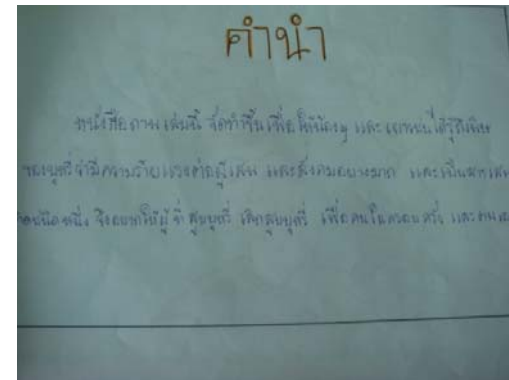 คำนำ
หนังสือภาพเล่มนี้ จัดทำขึ้นเพื่อ ให้น้องๆ และ เยาวชนได้รู้ถึงพิษ
ของบุหรี่ว่ามีความร้ายแรงต่อผู้เสพ และสังคมอย่างมาก และเป็นสารเสพ
ชนิดหนึ่ง จึงอยากให้ผู้ ที่ สูบบุหรี่ เลิกสูบบุหรี่ เพื่อคนในครอบครัว และ